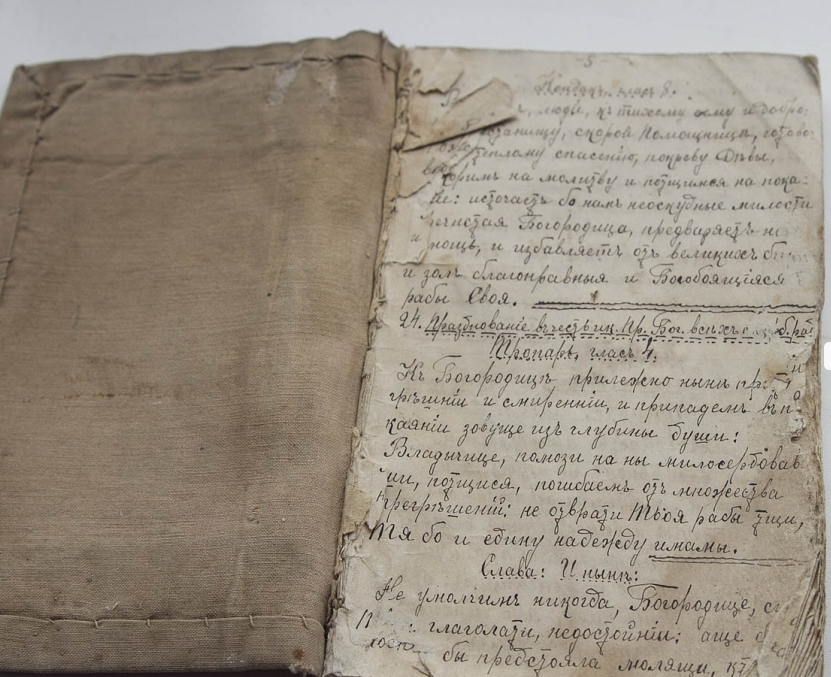 5
Кондакъ, гласъ 8.
люди, къ тихому сему и добро-
скорой Помощницѣ, готово-
теплому спасенію, покрову Дѣвы,
на молитву и потщимся на пока-
не: источаетъ бо намъ неоскудные милости
Богородица, предваряетъ
и избавляетъ отъ великихъ
и золъ благонравныя и Богобоящіяся
рабы Своя.
24. Празднованіе въ честь ик. Пр. Бог. всѣхъ
Тропарь, гласъ 4.
Къ Богородицѣ прилежно нынѣ
грѣшніи и смиренніи, и припадемъ въ п
каяніи зовуще изъ глубины души:
Владычице, помози на ны милосердовав
ши, потщися, погибаемъ отъ множества
прегрѣшеній: не отврати Твоя рабы тщи,
Тя бо и едину надежду имамы.
Слава: И нынѣ:
Не умолчимъ никогда, Богородице,
глаголати, недостойніи: аще
бы предстояла молящи,